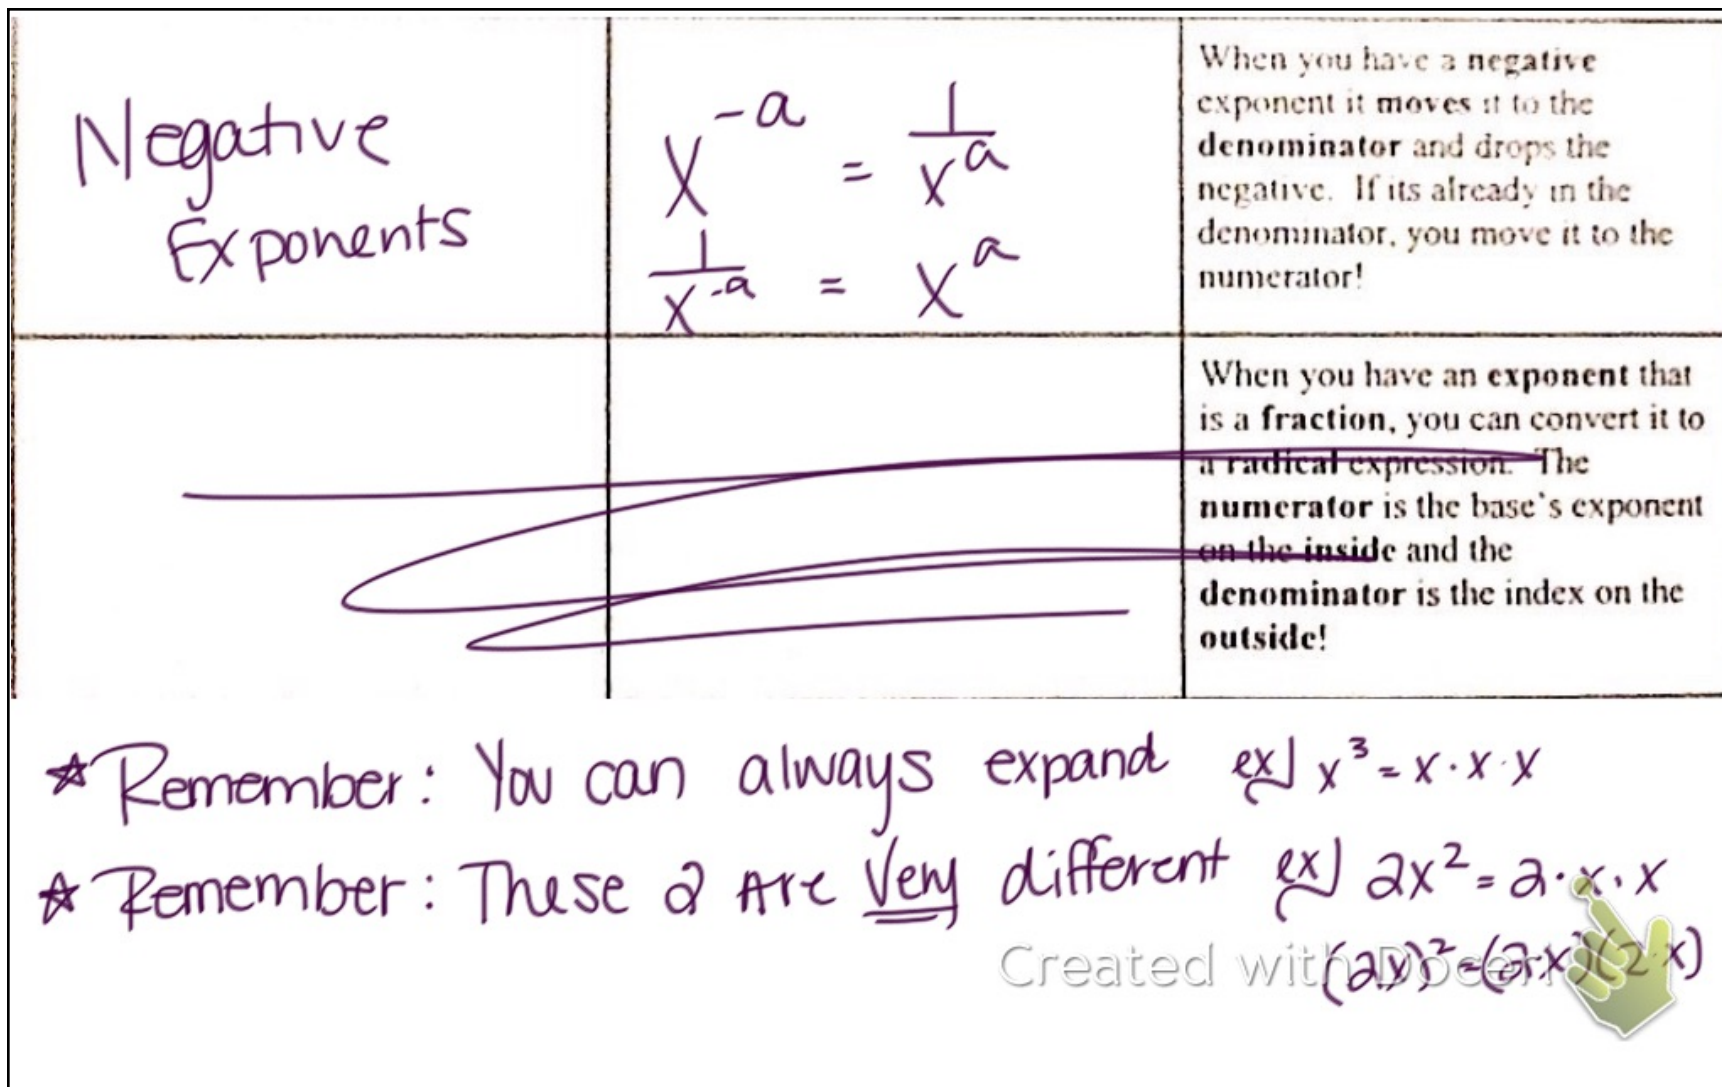 Negative
Exponents
x^{-a} = \frac{1}{x^a}
\frac{1}{x^{-a}} = x^a
When you have a negative
exponent it moves it to the
denominator and drops the
negative. If its already in the
denominator, you move it to the
numerator!
When you have an exponent that
is a fraction, you can convert it to
a radical expression. The
numerator is the base's exponent
on the inside and the
denominator is the index on the
outside!
☆ Remember: You can always expand ex] x³ = x · x · x
☆ Remember: These 2 Are Very different ex] 2x² = 2 · x · x
(2x)² = (2·x)(2·x)
Created with Doceri